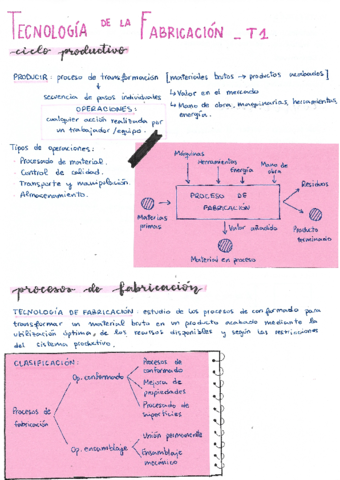 TECNOLOGÍA DE LA FABRICACIÓN _ T1
ciclo productivo
PRODUCIR: proceso de transformación [materiales brutos → productos acabados]
secuencia de pasos individuales
↳ Valor en el mercado
OPERACIONES:
↳ Mano de obra, maquinarias, herramientas
energía.
cualquier acción realizada por
un trabajador/equipo.
Tipos de operaciones:
· Procesado de material.
· Control de calidad.
· Transporte y manipulación.
· Almacenamiento.
Máquinas
Herramientas
Energía
Mano de
obra
PROCESO DE
FABRICACIÓN
Residuos
Materias
primas
Valor añadido
Producto
terminado
Material en proceso
procesos de fabricación
TECNOLOGÍA DE FABRICACIÓN: estudio de los procesos de conformado para
transformar un material bruto en un producto acabado mediante la
utilización óptima, de los recursos disponibles y según las restricciones
del sistema productivo.
CLASIFICACIÓN:
Procesos de
fabricación
Op. conformado
Procesos de
conformado
Mejora de
propiedades
Procesado de
superficies
Op. ensamblaje
Unión permanente
Ensamblaje
mecánico